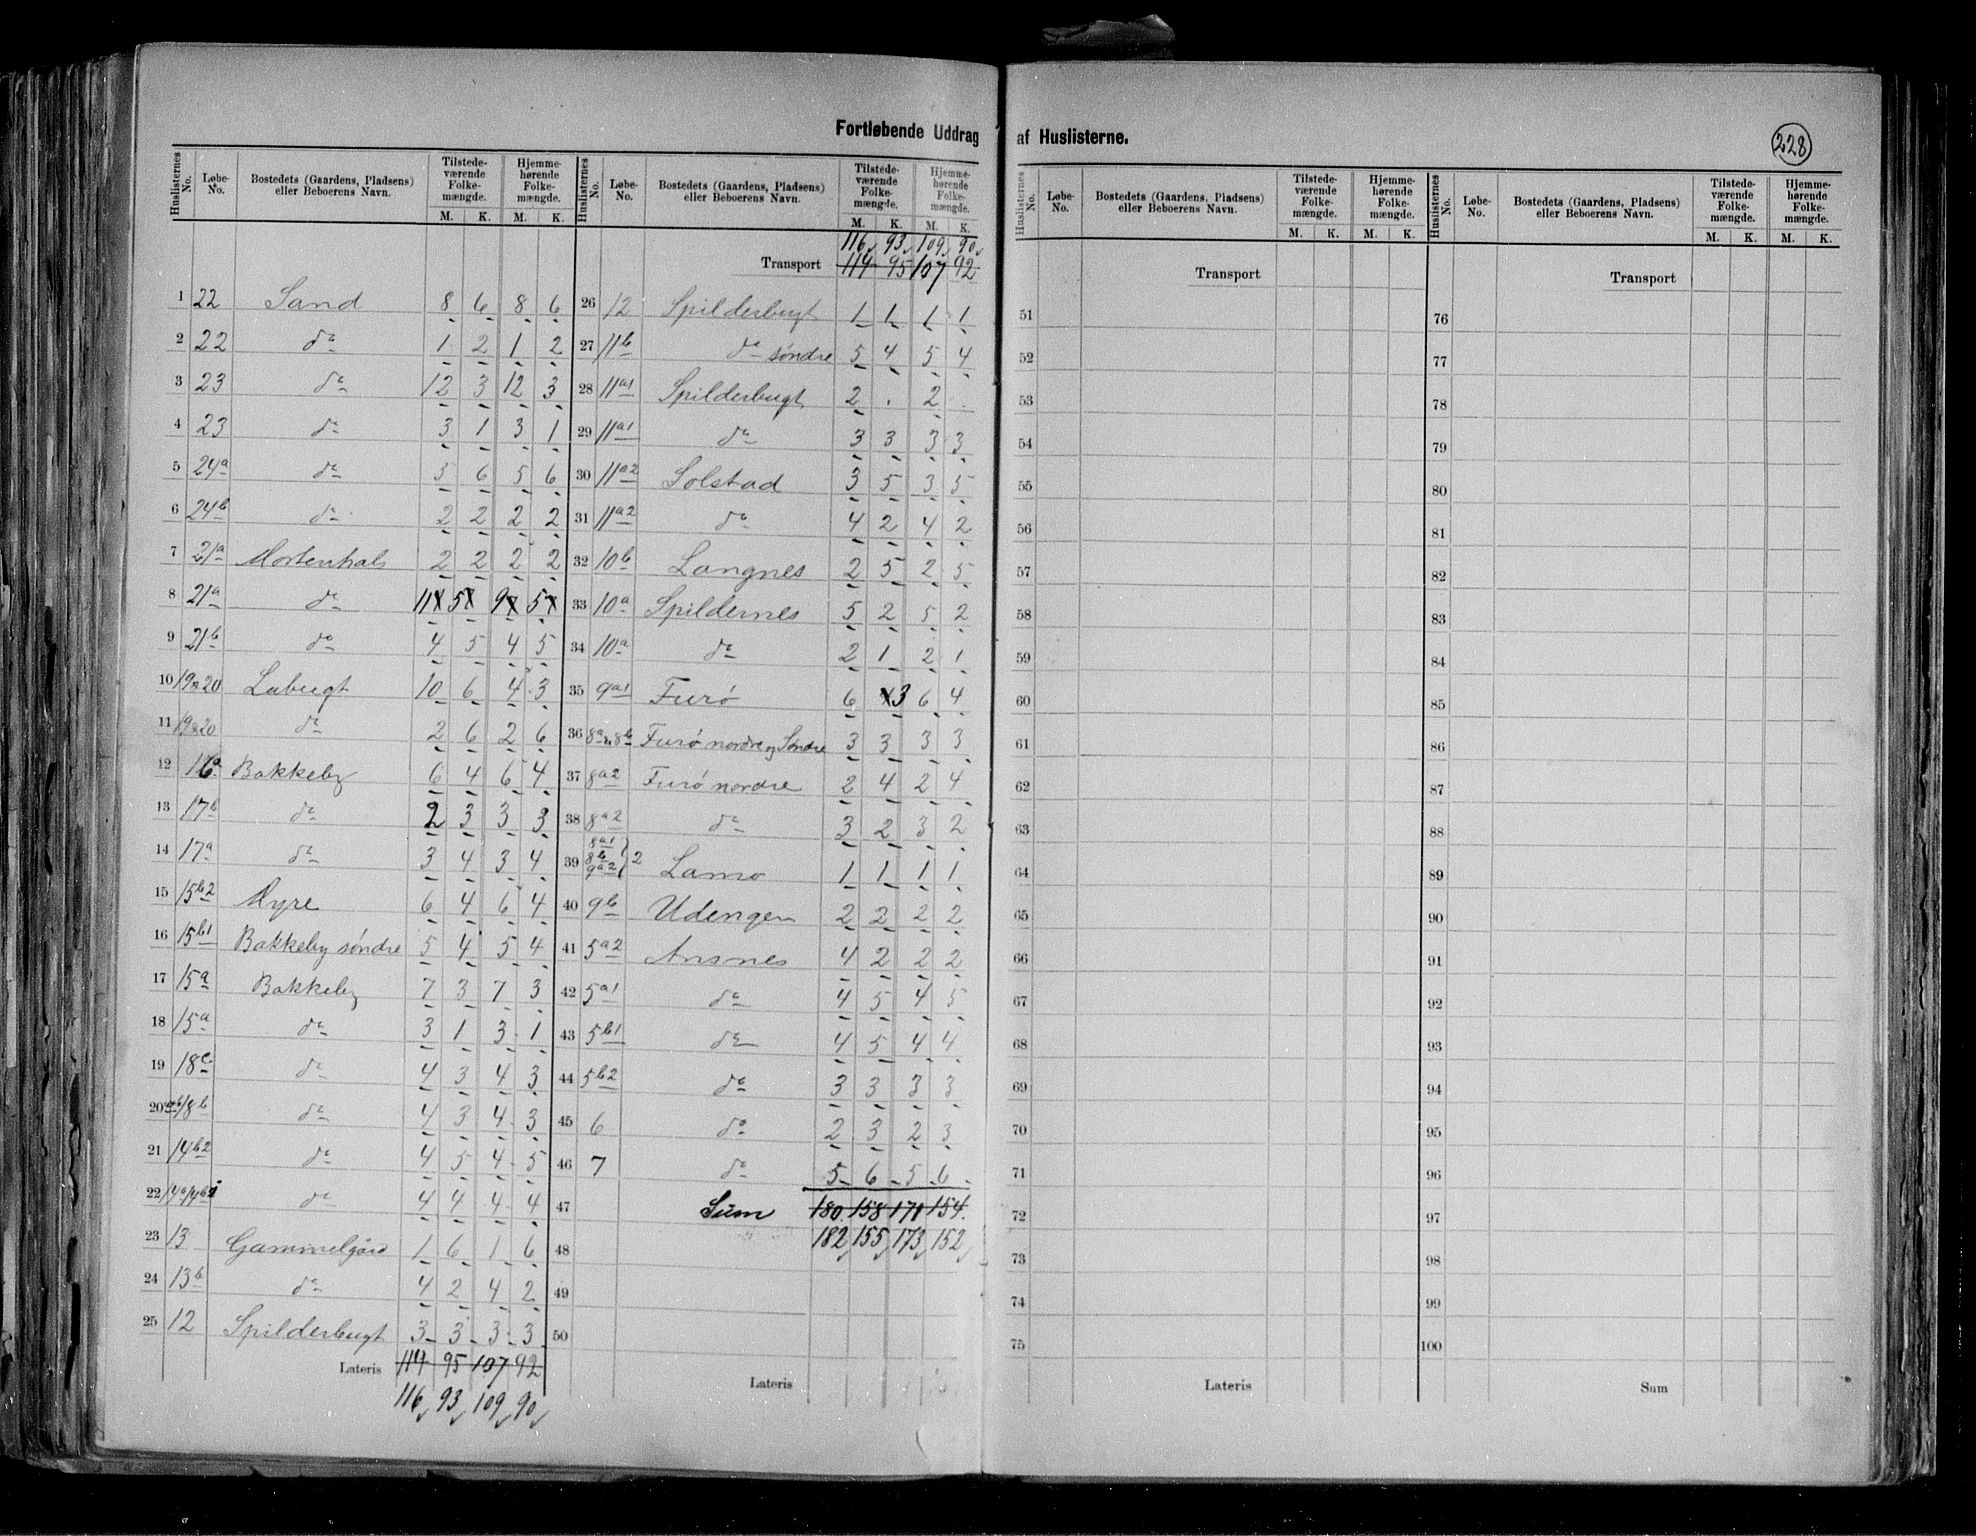 Fortløbende Uddrag af Huslisterne.
228
Huslisternes No. Løbe-No. Bostedets (Gaardens, Pladsens) eller Beboerens Navn. Tilstedeværende Folkemængde. M. K. Hjemmehørende Folkemængde. M. K.
1 22 Sand 8 6 8 6
2 22 do 1 2 1 2
3 23 do 12 3 12 3
4 23 do 3 1 3 1
5 24a do 5 6 5 6
6 24b do 2 2 2 2
7 21a Mortenhals 2 2 2 2
8 21a do 11 5 9 5
9 21b do 4 5 4 5
10 19&20 Labugt 10 6 4 3
11 19&20 do 2 6 2 6
12 16a Bakkeby 6 4 6 4
13 17b do 2 3 3 3
14 17a do 3 4 3 4
15 15b2 Myre 6 4 6 4
16 15b1 Bakkeby søndre 5 4 5 4
17 15a Bakkeby 7 3 7 3
18 15a do 3 1 3 1
19 18c do 4 3 4 3
20 18b do 4 3 4 3
21 14b2 do 4 5 4 5
22 14a 14b1 do 4 4 4 4
23 13 Gammelgård 1 6 1 6
24 13b do 4 2 4 2
25 12 Spilderbugt 3 3 3 3
Lateris 114 95 107 92
116 93 109 90
Huslisternes No. Løbe-No. Bostedets (Gaardens, Pladsens) eller Beboerens Navn. Tilstedeværende Folkemængde. M. K. Hjemmehørende Folkemængde. M. K.
116 93 109 90
Transport 114 95 107 92
26 12 Spilderbugt 1 1 1 1
27 11b do søndre 5 4 5 4
28 11a1 Spilderbugt 2 . 2 .
29 11a1 do 3 3 3 3
30 11a2 Solstad 3 5 3 5
31 11a2 do 4 2 4 2
32 10b Langnes 2 5 2 5
33 10a Spildernes 5 2 5 2
34 10a do 2 1 2 1
35 9a1 Furø 6 3 6 4
36 8a1 8b Furø nordre og Søndre 3 3 3 3
37 8a2 Furø nordre 2 4 2 4
38 8a2 do 3 2 3 2
39 8a1 8b 9a2 2 Lamo 1 1 1 1
40 9b Udengen 2 2 2 2
41 5a2 Ansnes 4 2 2 2
42 5a1 do 4 5 4 5
43 5b1 do 4 5 4 4
44 5b2 do 3 3 3 3
45 6 do 2 3 2 3
46 7 do 5 6 5 6
47 Sum 180 158 171 154
48 182 155 173 152
49
50
Lateris
Huslisternes No. Løbe-No. Bostedets (Gaardens, Pladsens) eller Beboerens Navn. Tilstedeværende Folkemængde. M. K. Hjemmehørende Folkemængde. M. K.
Transport
51
52
53
54
55
56
57
58
59
60
61
62
63
64
65
66
67
68
69
70
71
72
73
74
75
Lateris
Huslisternes No. Løbe-No. Bostedets (Gaardens, Pladsens) eller Beboerens Navn. Tilstedeværende Folkemængde. M. K. Hjemmehørende Folkemængde. M. K.
Transport
76
77
78
79
80
81
82
83
84
85
86
87
88
89
90
91
92
93
94
95
96
97
98
99
100
Sum